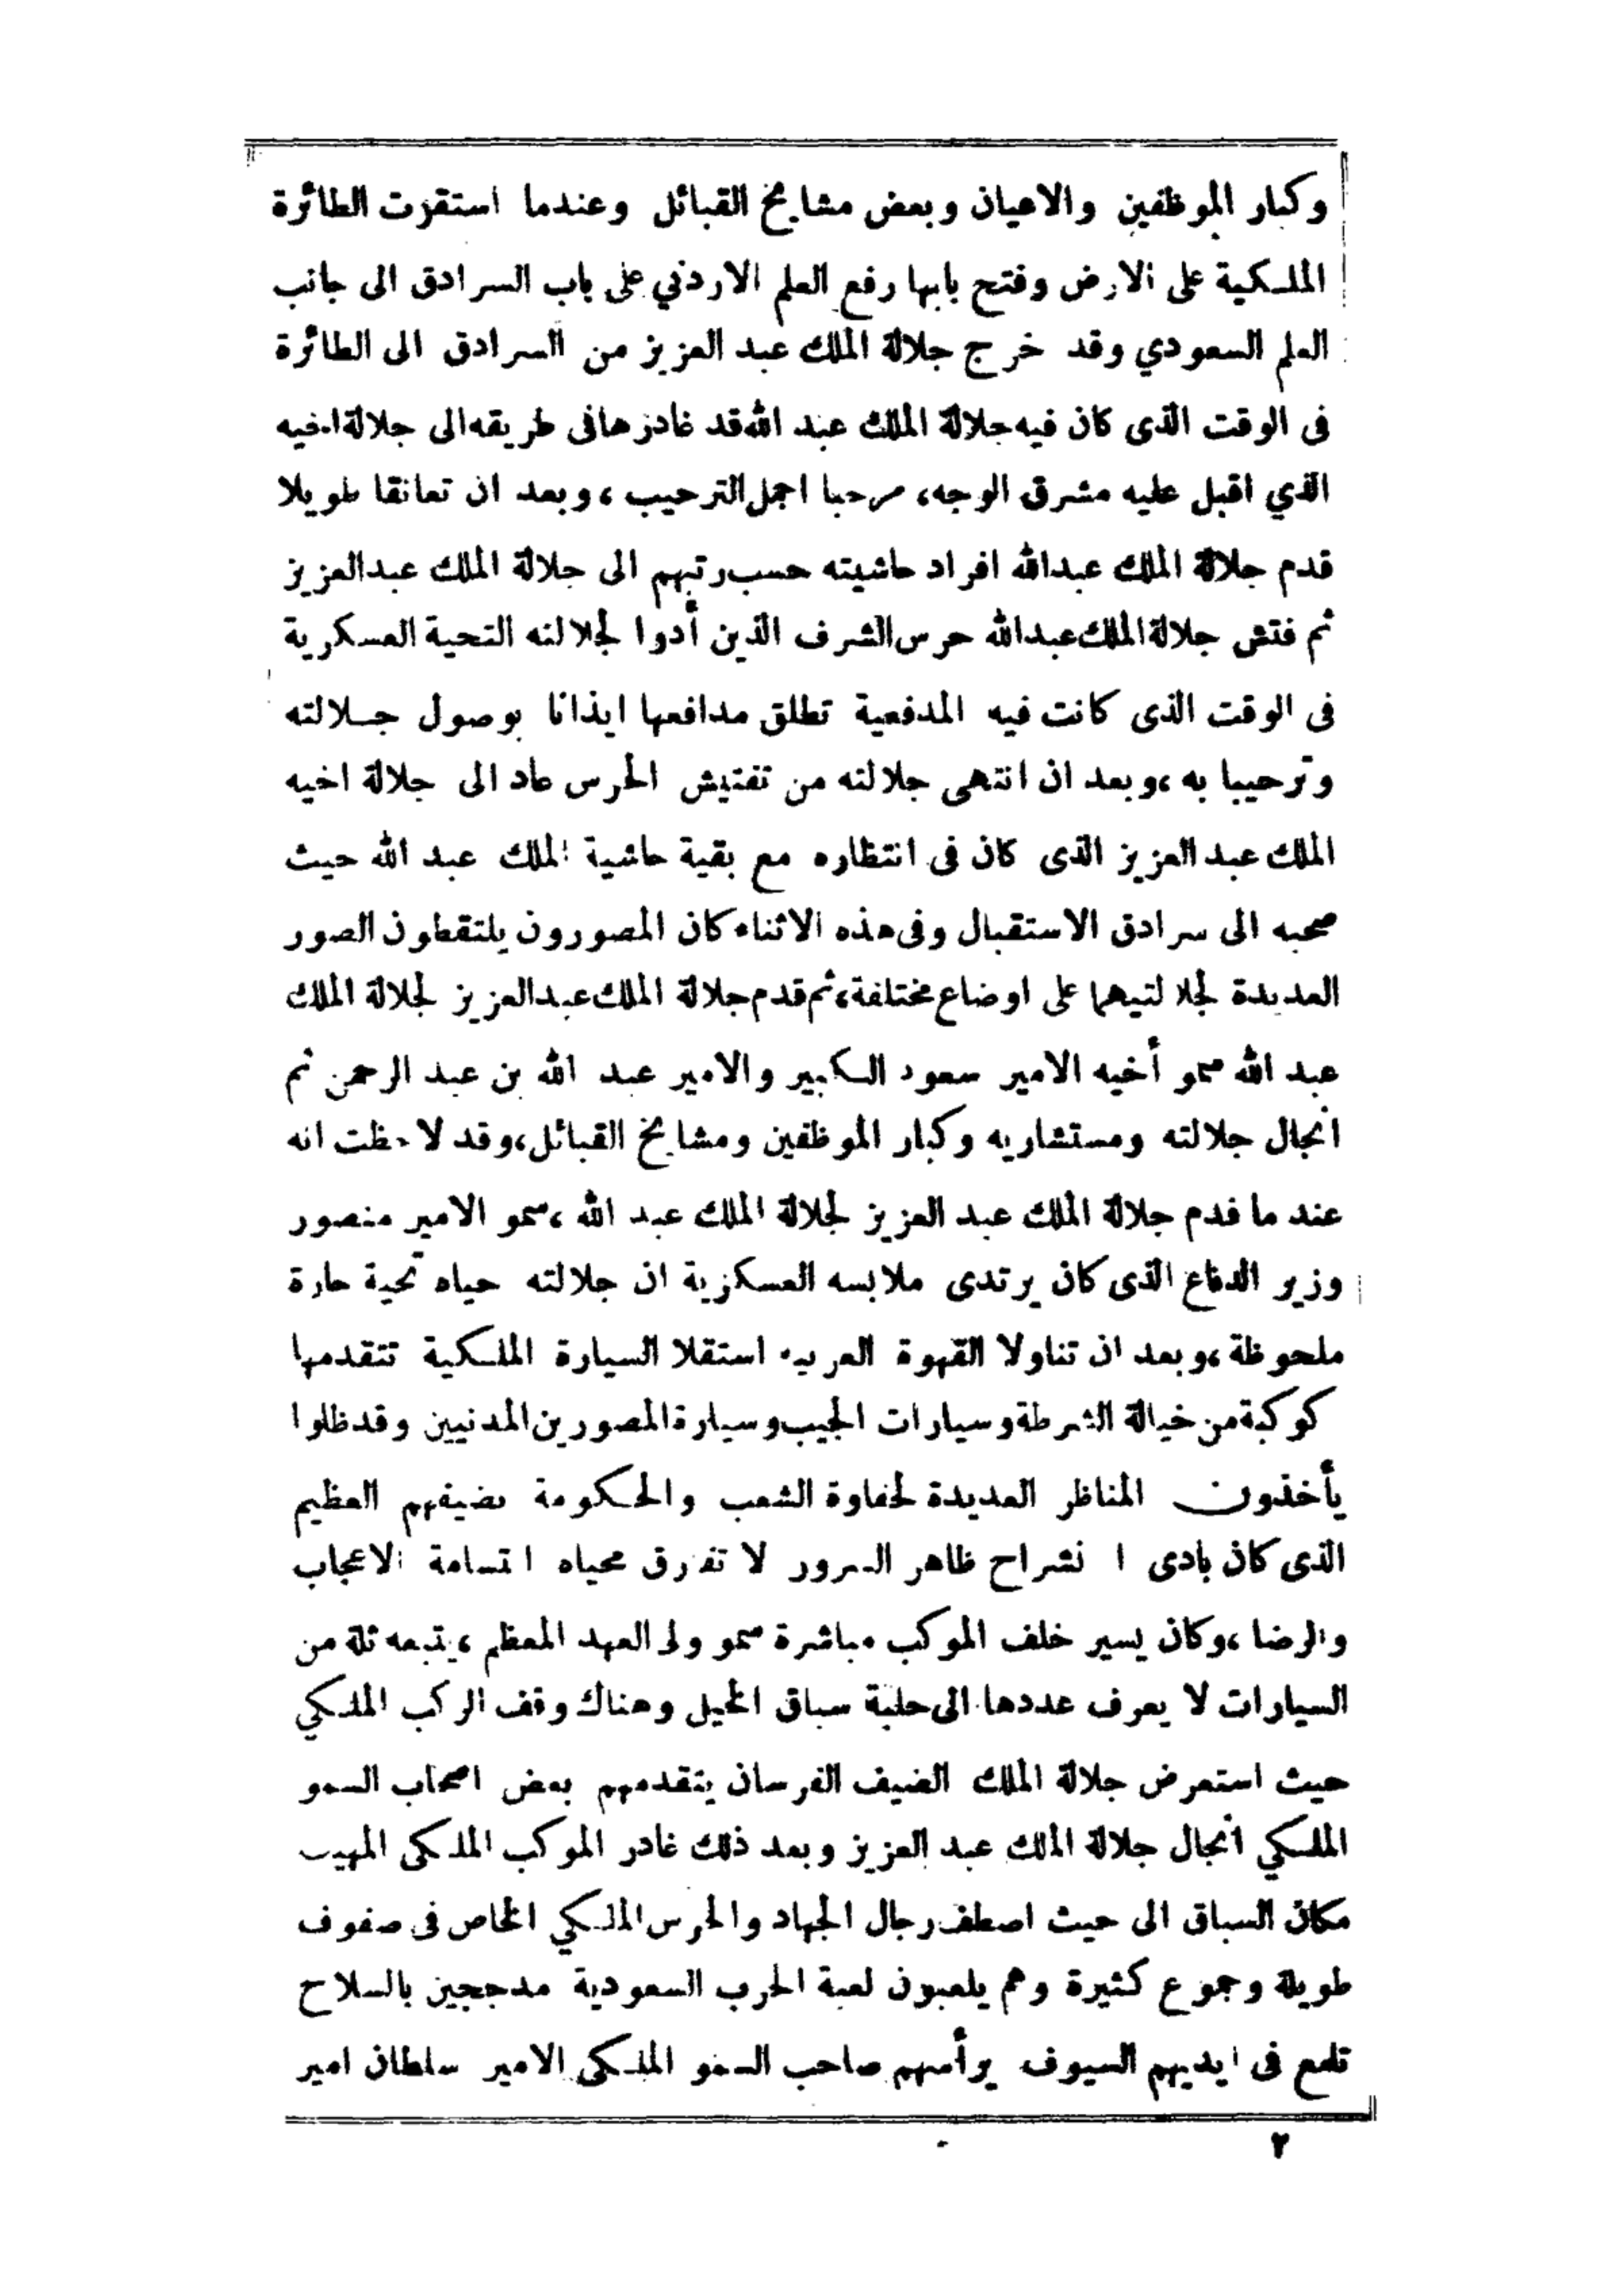 وكبار الموظفين والاعيان وبعض مشايخ القبائل وعندما استقرت الطائرة
الملكية على الارض وفتح بابها رفع العلم الاردني على باب السرادق الى جانب
العلم السعودي وقد خرج جلالة الملك عبد العزيز من السرادق الى الطائرة
فى الوقت الذى كان فيه جلالة الملك عبد الله قد غادرها فى طريقه الى جلالة اخيه
الذي اقبل عليه مشرق الوجه، مرحبا اجمل الترحيب ، وبعد ان تعانقا طويلا
قدم جلالة الملك عبدالله افراد حاشيته حسب رتبهم الى جلالة الملك عبدالعزيز
ثم فتش جلالة الملك عبدالله حرس الشرف الذين أدوا لجلالته التحية العسكرية
فى الوقت الذى كانت فيه المدفعية تطلق مدافعها ايذانا بوصول جلالته
وترحيبا به ،وبعد ان انتهى جلالته من تفتيش الحرس عاد الى جلالة اخيه
الملك عبد العزيز الذى كان فى انتظاره مع بقية حاشية الملك عبد الله حيث
صحبه الى سرادق الاستقبال وفى هذه الاثناء كان المصورون يلتقطون الصور
العديدة لجلالتيهما على اوضاع مختلفة، ثم قدم جلالة الملك عبدالعزيز لجلالة الملك
عبد الله سمو أخيه الامير سعود الكبير والامير عبد الله بن عبد الرحمن ثم
انجال جلالته ومستشاريه وكبار الموظفين ومشايخ القبائل،وقد لاحظت انه
عند ما قدم جلالة الملك عبد العزيز لجلالة الملك عبد الله ،سمو الامير منصور
وزير الدفاع الذى كان يرتدى ملابسه العسكرية ان جلالته حياه تحية حارة
ملحوظة ،وبعد ان تناولا القهوة العربيه استقلا السيارة الملكية تتقدمها
كوكبة من خيالة الشرطة وسيارات الجيب وسيارة المصورين المدنيين وقد ظلوا
يأخذون المناظر العديدة لحفاوة الشعب والحكومة بضيفهم العظيم
الذى كان بادى الانشراح ظاهر السرور لا تفارق محياه ابتسامة الاعجاب
والرضا ،وكان يسير خلف الموكب مباشرة سمو ولى العهد المعظم ، يتبعه ثلة من
السيارات لا يعرف عددها الى حلبة سباق الخيل وهناك وقف الركب الملكي
حيث استعرض جلالة الملك الضيف الفرسان يتقدمهم بعض اصحاب السمو
الملكي انجال جلالة الملك عبد العزيز وبعد ذلك غادر الموكب الملكى المهيب
مكان السباق الى حيث اصطف رجال الجهاد والحرس الملكي الخاص فى صفوف
طويلة وجموع كثيرة وهم يلعبون لعبة الحرب السعودية مدججين بالسلاح
تلمع فى ايديهم السيوف يرأسهم صاحب السمو الملكى الامير سلطان امير
٢